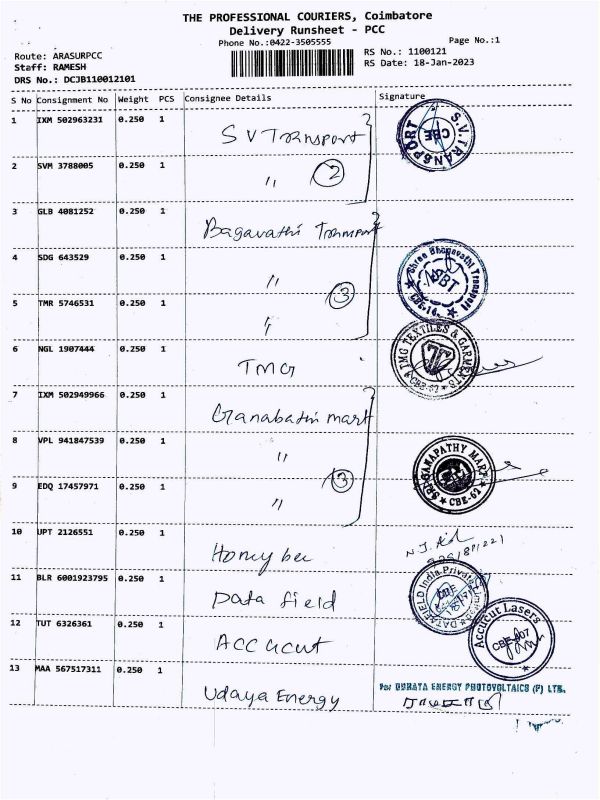 THE PROFESSIONAL COURIERS, Coimbatore
Delivery Runsheet - PCC
Phone No.:0422-3505555
Page No.:1
Route: ARASURPCC
RS No.: 1100121
Staff: RAMESH
RS Date: 18-Jan-2023
DRS No.: DCJB110012101
S No Consignment No Weight PCS Consignee Details Signature
1 IXM 502963231 0.250 1 S V Transport
S.V. TRANSPORT CBE
2 SVM 3788005 0.250 1 " 2
3 GLB 4081252 0.250 1 Bagavathi Transport
4 SDG 643529 0.250 1 "
Shree Bhagavathi Transport SBT CBE-14
5 TMR 5746531 0.250 1 " 3
6 NGL 1907444 0.250 1 TMG
TMG TEXTILES & GARMENTS CBE-62
7 IXM 502949966 0.250 1 Ganabathi mart
8 VPL 941847539 0.250 1 "
SRI GANAPATHY MART CBE-62
9 EDQ 17457971 0.250 1 " 3
10 UPT 2126551 0.250 1 Honey bee
11 BLR 6001923795 0.250 1 Data field
DATAFIELD India Private Limited
12 TUT 6326361 0.250 1 Accucut
Accucut Lasers
13 MAA 567517311 0.250 1 Udaya Energy
For UDHAYA ENERGY PHOTOVOLTAICS (P) LTD.